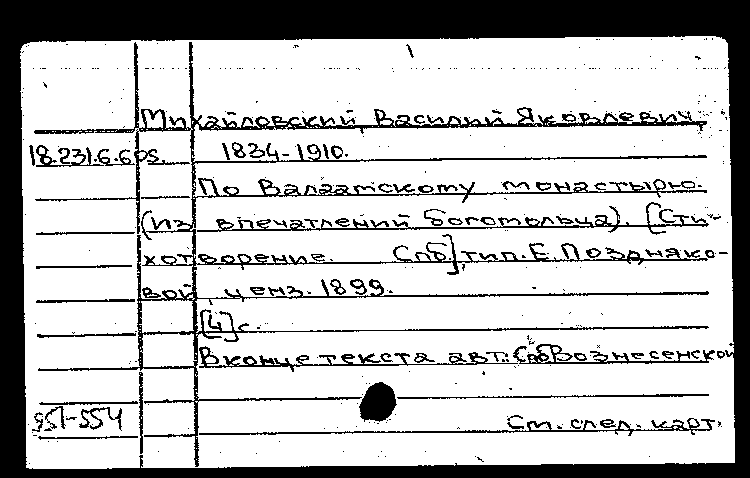 Михайловский, Василий Яковлевич,
18.231.6.6 1834-1910.
По Валаамскому монастырю.
(Из впечатлений богомольца). [Сти-
хотворение. Спб], тип. Е. Поздняко-
вой, ценз. 1899.
[4] с.
В конце текста авт.: Спб Вознесенской
551-554 См. след. карт.